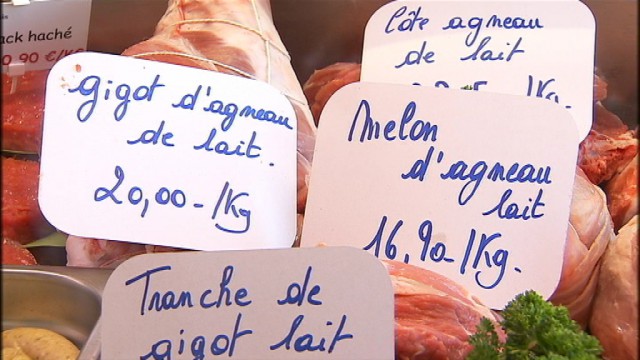 haché
90 €/K
Côte agneau
de lait
/Kg
gigot d'agneau
de lait.
20,00-/Kg
Melon
d'agneau
lait
16,90-/Kg.
Tranche de
gigot lait